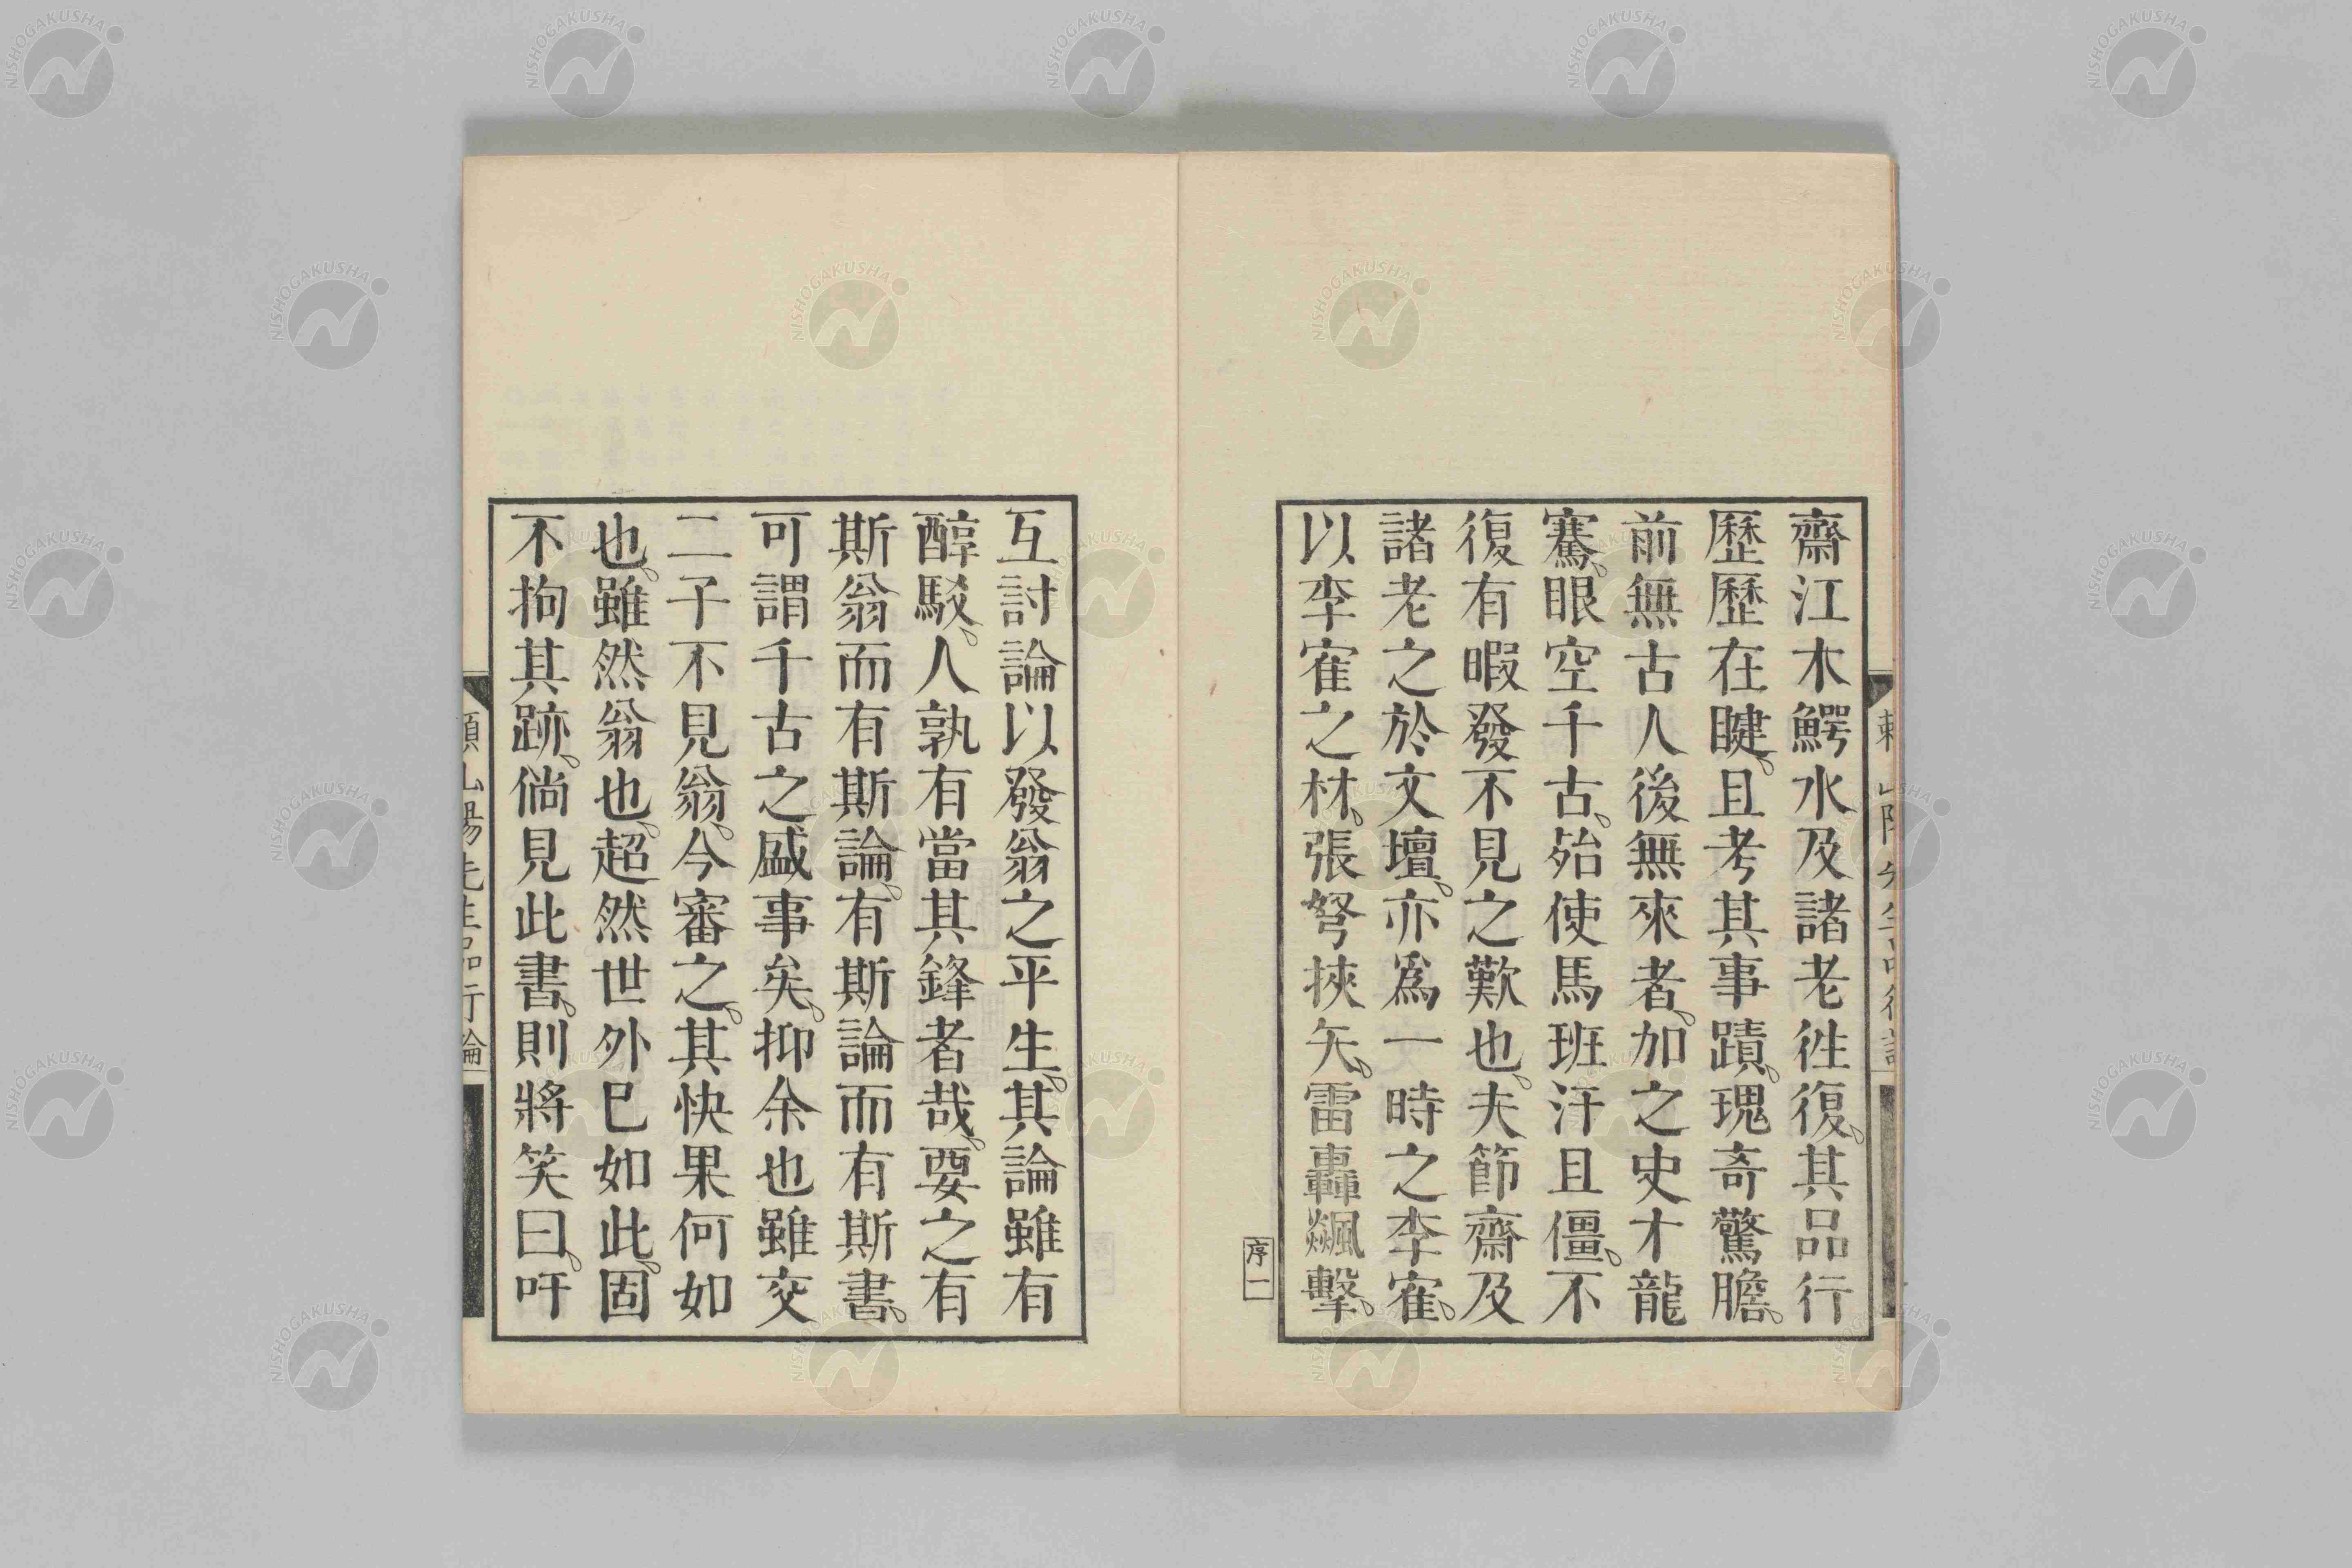 齋江木鰐水及諸老徃復。其品行
歷歷在睷。且考其事蹟。瑰奇驚膽。
前無古人後無來者。加之史才龍
騫。眼空千古。殆使馬班汗且僵。不
復有暇發不見之歎也。夫節齋及
諸老之於文壇。亦爲一時之李寉。
以李寉之材。張弩挾矢。雷轟飆擊。
序一
互討論以發翁之平生。其論雖有
醇駁。人孰有當其鋒者哉。要之有
斯翁而有斯論。有斯論而有斯書。
可謂千古之盛事矣。抑余也雖交
二子不見翁。今審之。其快果何如
也。雖然翁也。超然世外巳如此。固
不拘其跡。倘見此書。則將笑曰。吁
頼山陽先生品行論
NISHOGAKUSHA